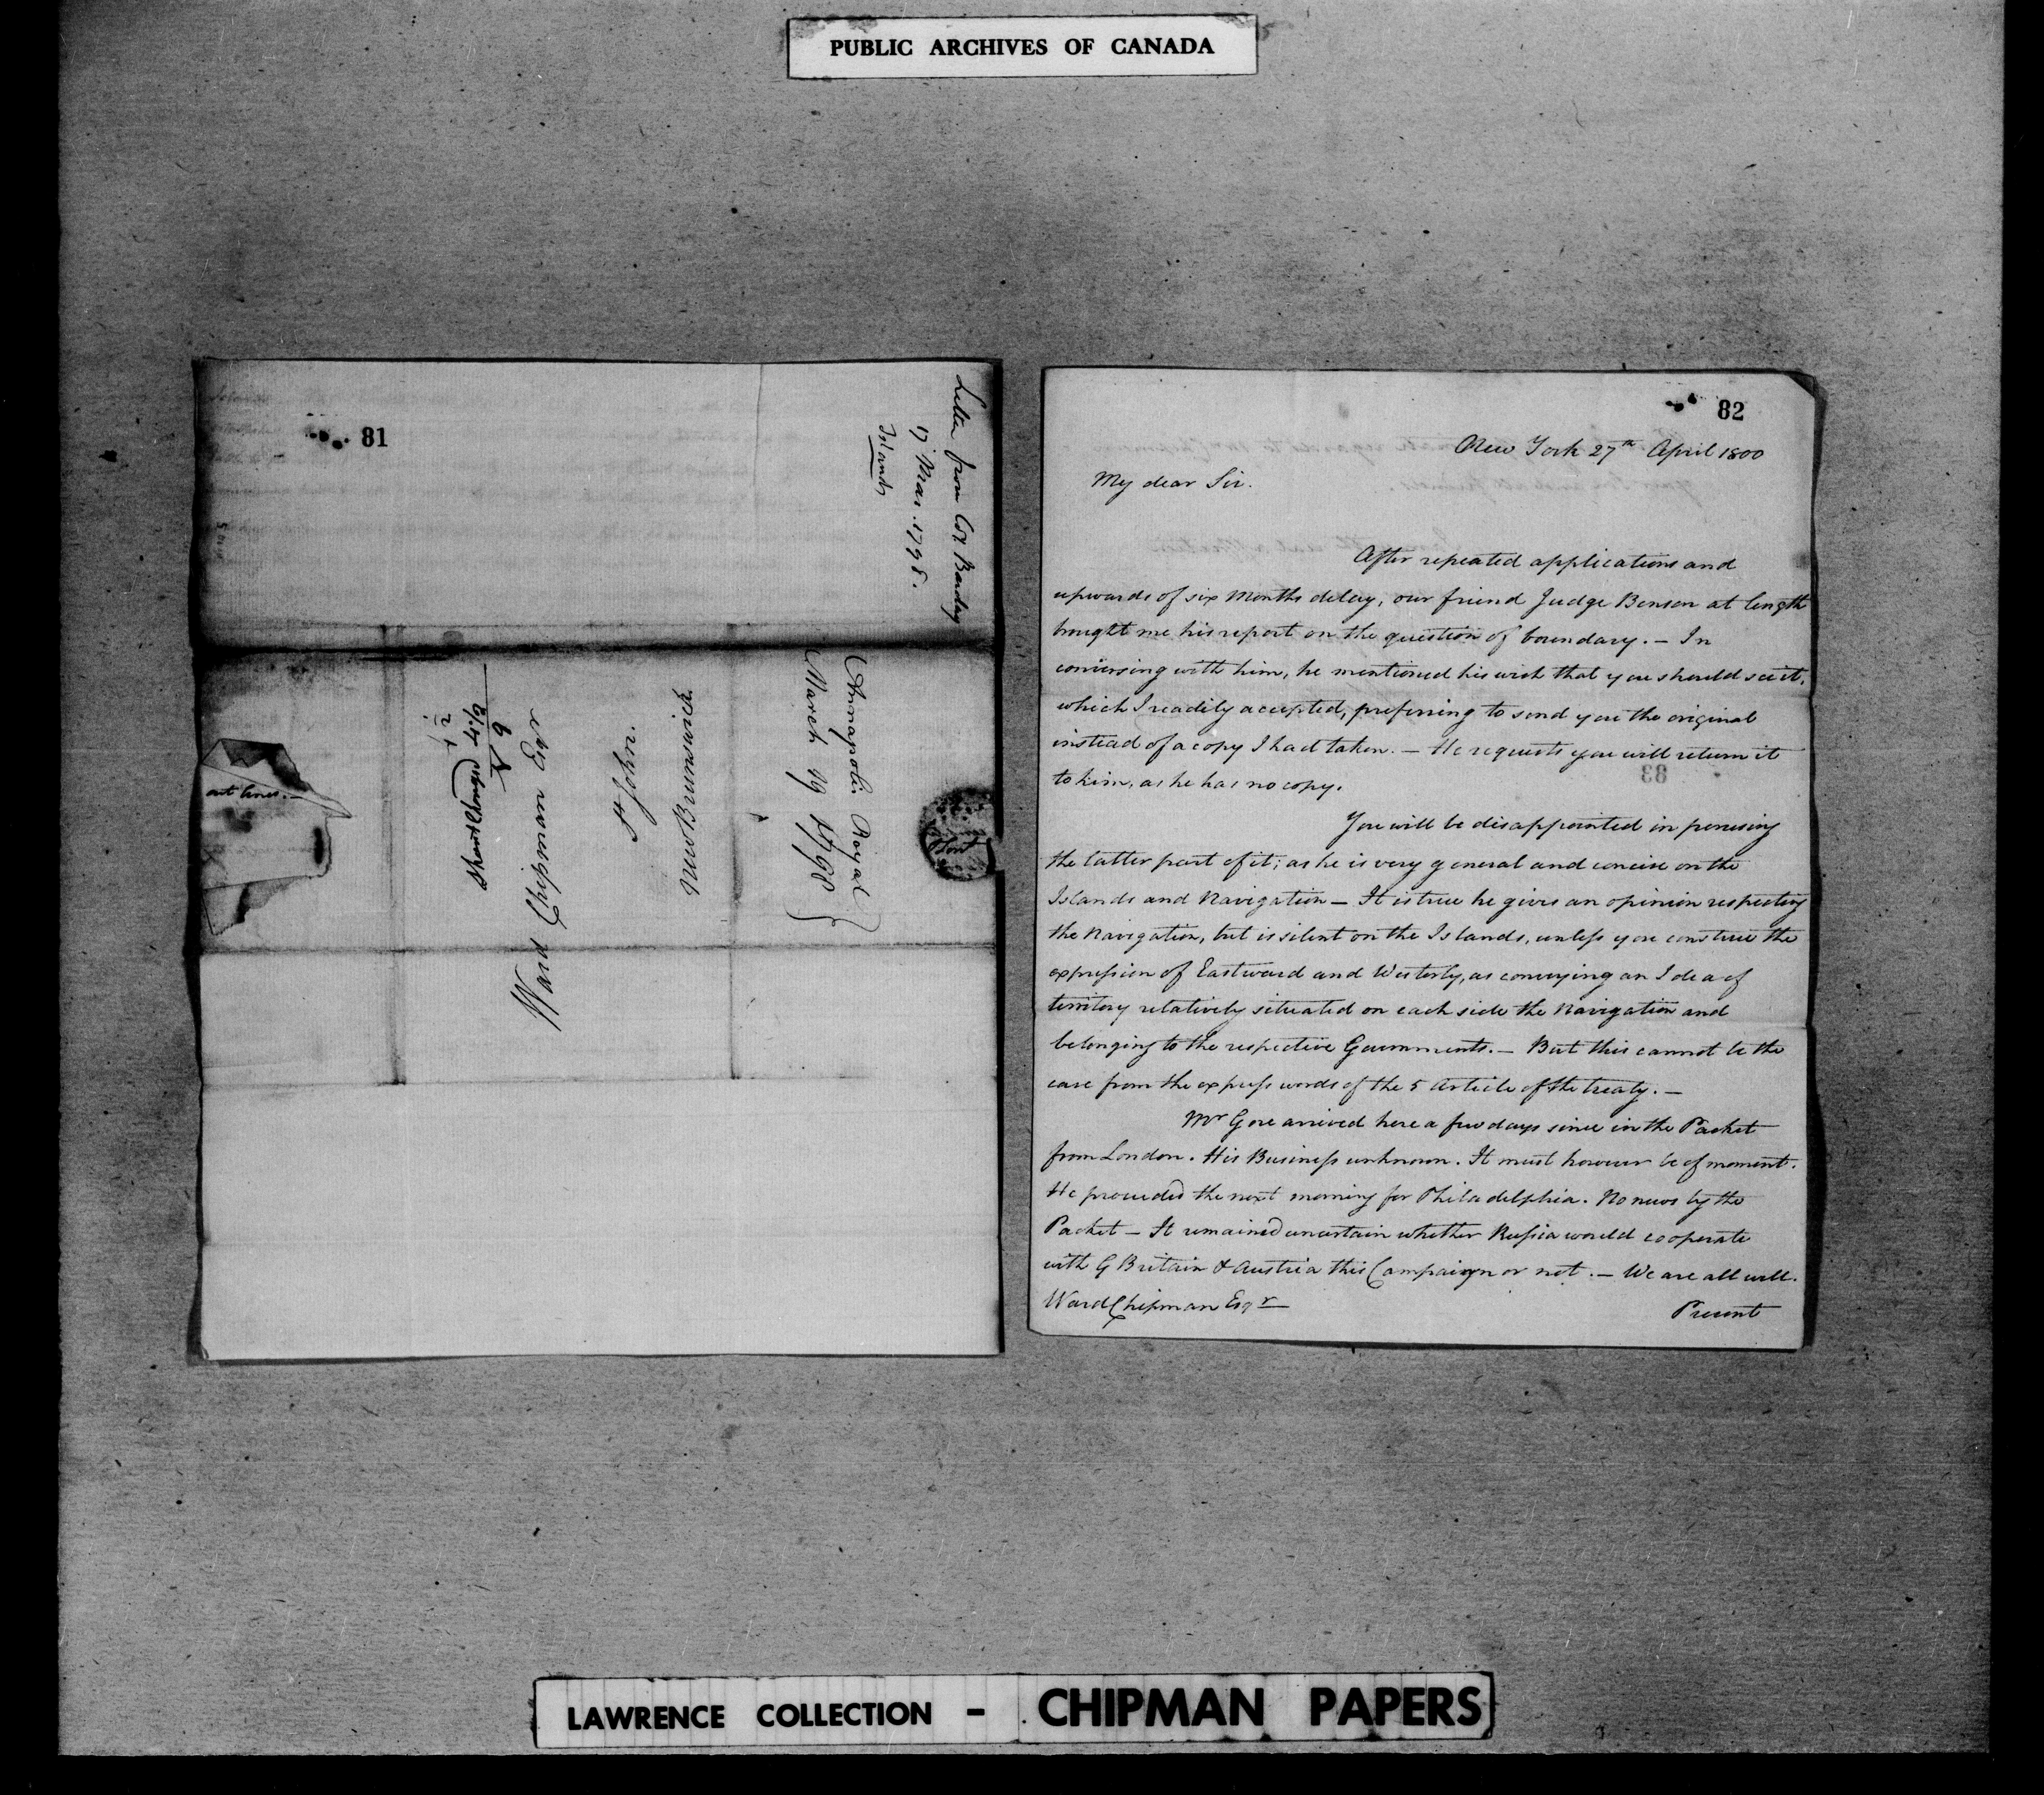 PUBLIC ARCHIVES OF CANADA
81
Letter from Col Barclay
17 Mar. 1798.
Islands
Annapolis Royal
March 19 1798
Ward Chipman Esqr
St John.
New Brunswick
82
New York 27th April 1800
My dear Sir.
After repeated applications and
upwards of six Months delay, our friend Judge Benson at length
brought me his report on the question of boundary. — In
conversing with him, he mentioned his wish that you should see it,
which I readily accepted, preferring to send you the original
instead of a copy I had taken. — He requests you will return it
to him, as he has no copy.
83
You will be disappointed in perusing
the latter part of it; as he is very general and concise on the
Islands and Navigation — It is true he gives an opinion respecting
the Navigation, but is silent on the Islands, unless you construe the
expression of Eastward and Westerly, as conveying an Idea of
territory relatively situated on each side the Navigation and
belonging to the respective Governments. — But this cannot be the
case from the express words of the 5 Article of the treaty. —
Mr Gore arrived here a few days since in the Packet
from London. His Business unknown. It must however be of moment.
He proceeded the next morning for Philadelphia. No news by the
Packet — It remained uncertain whether Russia would cooperate
with G Britain & Austria this Campaign or not. — We are all well.
Ward Chipman Esqr
Present
LAWRENCE COLLECTION - CHIPMAN PAPERS